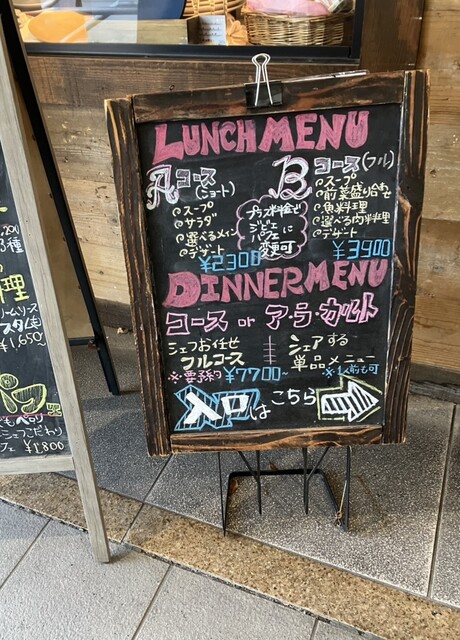 LUNCH MENU
Aコース
(ショート)
・スープ
・サラダ
・選べるメイン
・デザート
¥2300
プラス料金で
ジビエ
パフェに
変更可
Bコース(フル)
・スープ
・前菜盛り合せ
・魚料理
・選べる肉料理
・デザート
¥3900
DINNER MENU
コース or ア・ラ・カルト
シェフお任せ
フルコース
※要予約 ¥7700~
シェアする
単品メニュー
※1人前も可
入口はこちら
3種
理
¥1,650~
¥1,800